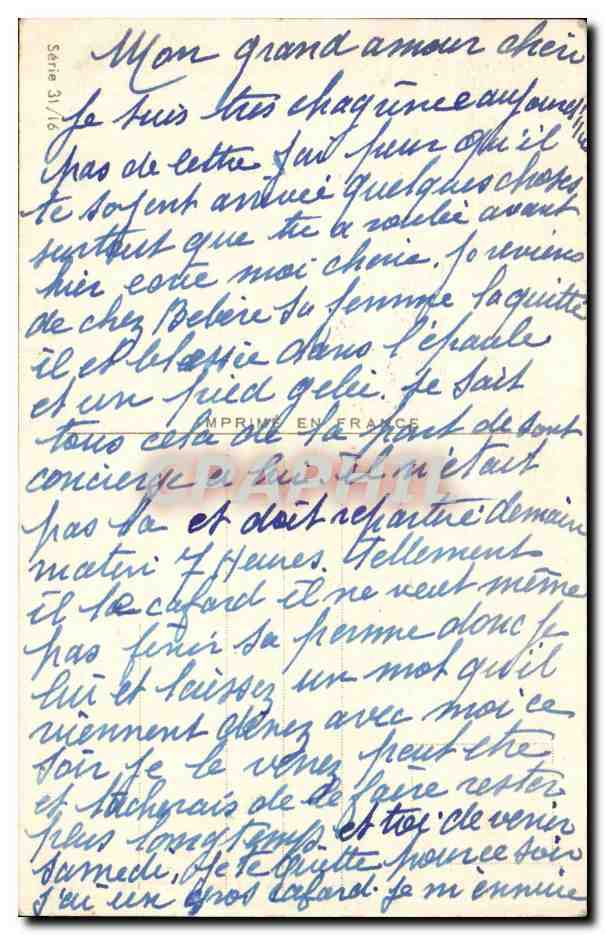 Série 31/16
Mon grand amour cheri
Je suis tres chagrinee aujourd'hui
pas de lettre j'ai peur qu'il
te soyent arrivée quelques choses
surtout que tu a avant
hier moi cherie. Je reviens
de chez Bebère sa femme la quitté
il et blessie dans l'épaule
et un pied gelée. Je sait
IMPRIMÉ EN FRANCE
tous cela de la part de sont
concierge a lui. il n'était
CPAPHIL
pas la et doit repartire demain
matin 7 Heures. tellement
il la cafard il ne veut même
pas finir sa perme donc je
lui et laissez un mot qu'il
viennent dinez avec moi ce
soir je le verrez peut etre
et tacherais de le faire rester
plus longtemps et toi de venir
samedi. Je te quitte pour ce soir
j'ai un gros cafard. je m'ennuie